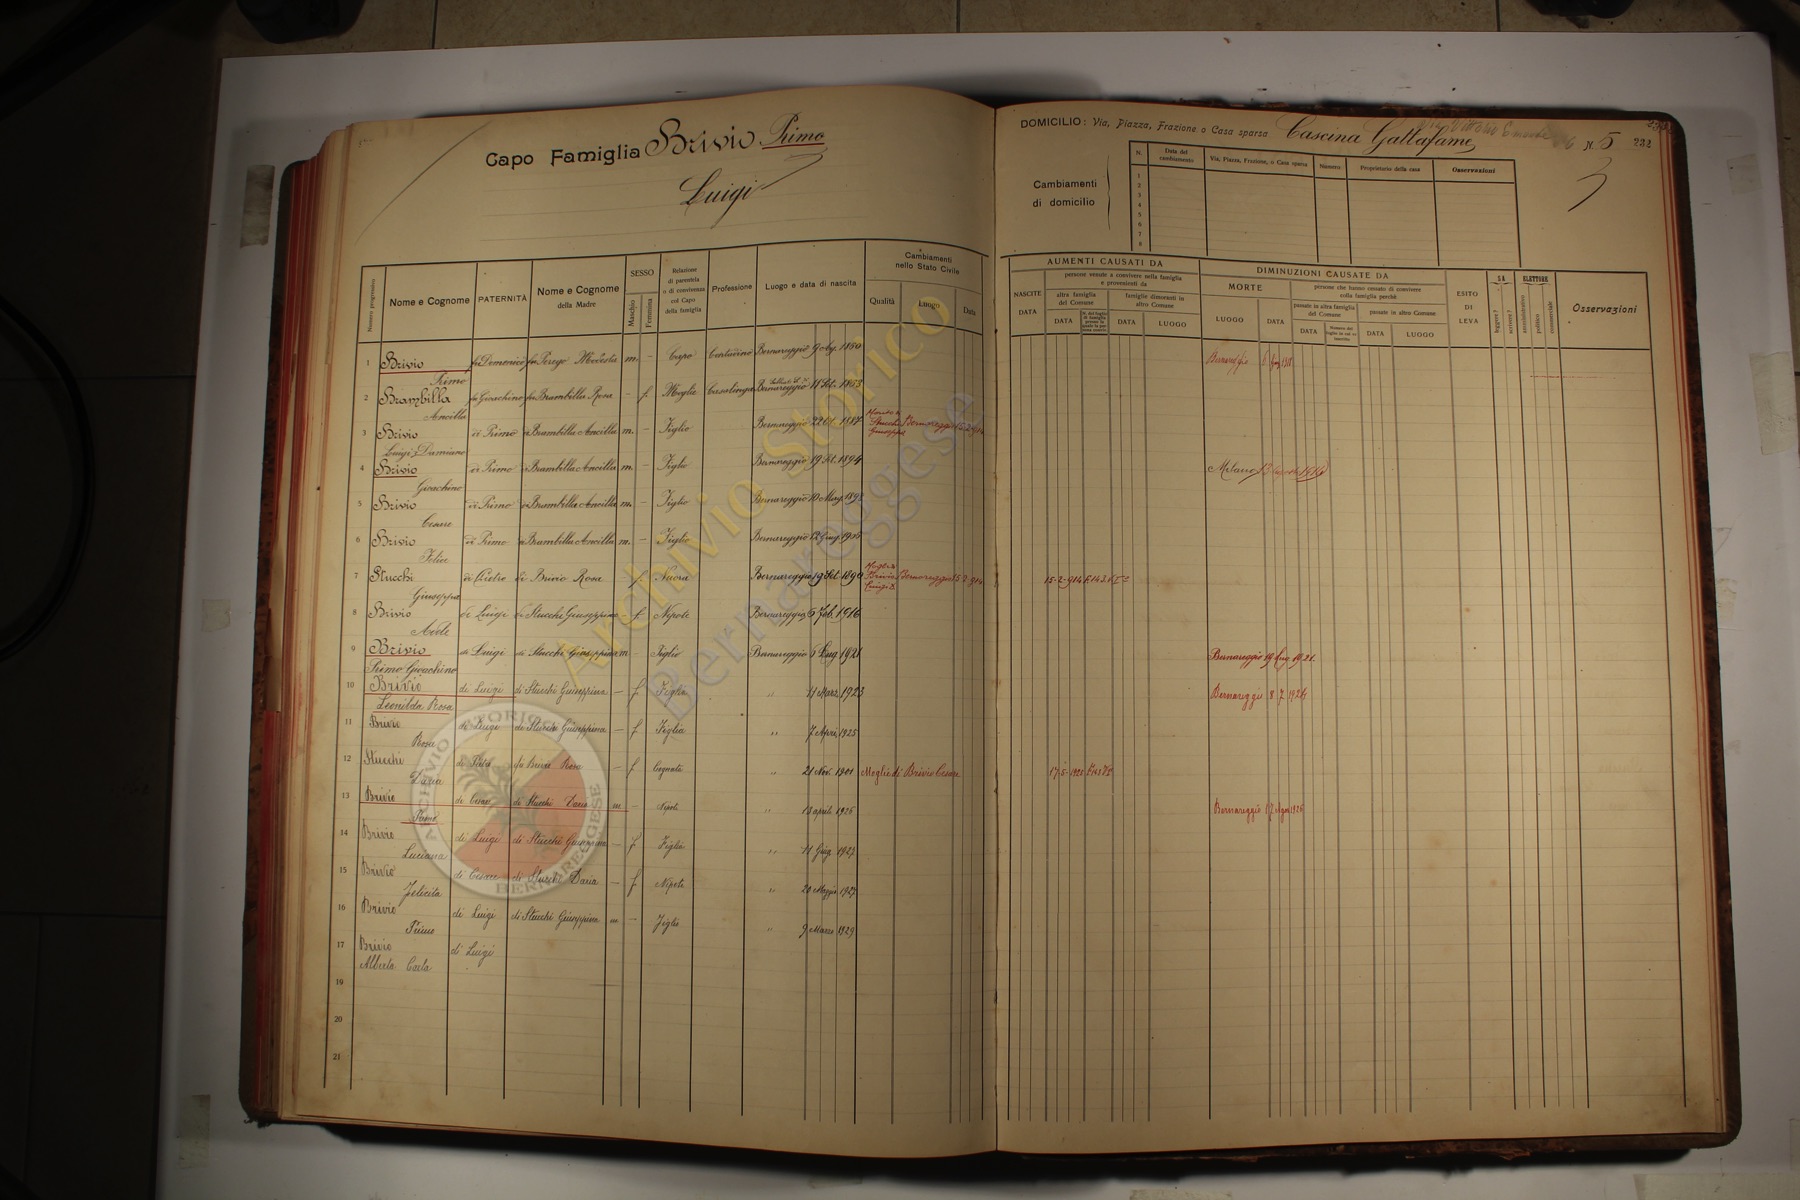 Capo Famiglia Brivio Primo
Luigi
DOMICILIO: Via, Piazza, Frazione o Casa sparsa Cascina Gallafame N. 5 232
Cambiamenti
di domicilio
N. Data del cambiamento Via, Piazza, Frazione, o Casa sparsa Numero Proprietario della casa Osservazioni
1
2
3
4
5
6
7
8
Numero progressivo Nome e Cognome PATERNITÀ Nome e Cognome della Madre SESSO Maschio Femmina Relazione di parentela o di convivenza col Capo della famiglia Professione Luogo e data di nascita Cambiamenti nello Stato Civile Qualità Luogo Data
AUMENTI CAUSATI DA
NASCITE DATA
persone venute a convivere nella famiglia e provenienti da
altra famiglia del Comune DATA
famiglie dimoranti in altro Comune DATA LUOGO
DIMINUZIONI CAUSATE DA
MORTE LUOGO DATA
persone che hanno cessato di convivere colla famiglia perchè
passate in altra famiglia del Comune DATA
passate in altro Comune DATA LUOGO
ESITO DI LEVA
SA leggere? scrivere?
ELETTORE amministrativo politico commerciale
Osservazioni
1 Brivio Primo fu Domenico fu Perego Modesta m. – Capo Contadino Bernareggio 9 1850 Bernareggio
2 Brambilla Ancilla fu Gioachino fu Brambilla Rosa – f. Moglie Casalinga Bernareggio 11 1853
3 Brivio Luigi Damiano di Primo di Brambilla Ancilla m. – Figlio Bernareggio 22 1887 Marito di Stucchi Giuseppa Bernareggio 15-2-914
4 Brivio Gioachino di Primo di Brambilla Ancilla m. – Figlio Bernareggio 19 1894 Milano 13
5 Brivio Cesare di Primo di Brambilla Ancilla m. – Figlio Bernareggio 10 Mag. 1898
6 Brivio Felice di Primo di Brambilla Ancilla m. – Figlio Bernareggio 12 Giug.
7 Stucchi Giuseppa di Pietro di Brivio Rosa f. Nuora Bernareggio 19 1890 Moglie di Brivio Luigi D. Bernareggio 15-2-914 15-2-914
8 Brivio Adele di Luigi di Stucchi Giuseppina – f. Nipote Bernareggio 5 Feb. 1916
9 Brivio Primo Gioachino di Luigi di Stucchi Giuseppina m Figlio Bernareggio Lug 1921 Bernareggio 19 Lug 1921.
10 Brivio Leonilda Rosa di Luigi di Stucchi Giuseppina – f. Figlia " 11 Marz. 1923 Bernareggio 8 7 1924
11 Brivio Rosa di Luigi di Stucchi Giuseppina – f. Figlia " 7 April. 1925
12 Stucchi Daria di Brivio Rosa – f. Cognata " 21 Nov. 1901 Moglie di Brivio Cesare 17-5-1925
13 Brivio di Cesare di Stucchi Daria m – Nipote " 13 aprile 1926 Bernareggio 17 Agos 1926
14 Brivio Luciana di Luigi di Stucchi Giuseppina – f. Figlia " 11 Giug. 1927
15 Brivio Felicita di Cesare di Stucchi Daria – f. Nipote " 20 Maggio 1927
16 Brivio Primo di Luigi di Stucchi Giuseppina m – Figlio " 9 Marzo 1929
17 Brivio Alberto Carlo di Luigi
19
20
21
Archivio Storico
Bernareggese
ARCHIVIO STORICO
BERNAREGGESE